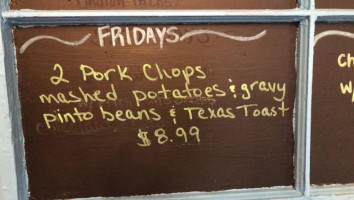 FRIDAYS
2 Pork Chops
mashed potatoes & gravy
pinto beans & Texas Toast
$8.99
Ch
W/